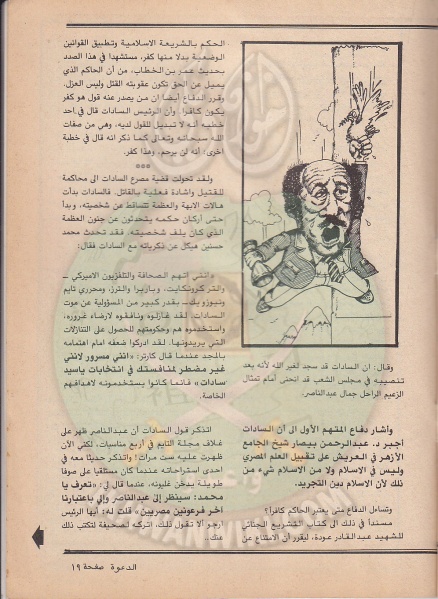 وقال: ان السادات قد سجد لغير الله لأنه بعد
تنصيبه في مجلس الشعب قد انحنى أمام تمثال
الزعيم الراحل جمال عبدالناصر.
وأشار دفاع المتهم الأول الى أن السادات
أجبر د. عبدالرحمن بيصار شيخ الجامع
الأزهر في العريش على تقبيل العلم المصري
وليس في الاسلام ولا من الاسلام شيء من
ذلك لأن الاسلام دين التجريد.
وتساءل الدفاع متى يعتبر الحاكم كافراً؟
مسنداً في ذلك الى كتاب التشريع الجنائي
للشهيد عبدالقادر عودة، ليقرر أن الامتناع عن
الحكم بالشريعة الاسلامية وتطبيق القوانين
الوضعية بدلا منها كفر، مستشهدا في هذا الصدد
بحديث عمر بن الخطاب، من أن الحاكم الذي
يميل عن الحق تكون عقوبته القتل وليس العزل.
وقرر الدفاع أيضا ان من يصدر عنه قول هو كفر
يكون كافراً. وأن الرئيس السادات قال في احد
خطبه أنه لا تبديل للقول لديه، وهي من صفات
الله سبحانه وتعالى كما ذكر انه قال في خطبة
اخرى: أنه لن يرحم، وهذا كفر.
***
ولقد تحولت قضية مصرع السادات الى محاكمة
للقتيل واشادة فعلية بالقاتل. فالسادات بدأت
هالات الابهة والعظمة تتساقط عن شخصيته، وبدأ
حتى أركان حكمه يتحدثون عن جنون العظمة
الذي كان يلف شخصيته. فقد تحدث محمد
حسنين هيكل عن ذكرياته مع السادات فقال:
«انني اتهم الصحافة والتلفزيون الاميركي -
والتر كرونكايت، وباربرا والترز، ومحرري تايم
ونيوزويك - بقدر كبير من المسؤولية عن موت
السادات. لقد غازلوه ونافقوه لارضاء غروره،
واستخدموه هم وحكومتهم للحصول على التنازلات
التي يريدونها. لقد ادركوا ضعفه امام اهتمامه
بالمجد عندما قال كارتر: «انني مسرور لانني
غير مضطر لمنافستك في انتخابات ياسيد
سادات» فانما كانوا يستخدمونه لاهدافهم
الخاصة.
اتذكر قول السادات أن عبدالناصر ظهر على
غلاف مجلة التايم في أربع مناسبات، لكني الآن
ظهرت عليه ست مرات! وأتذكر حديثا معه في
احدى استراحاته عندما كان مستلقيا على صوفا
طويلة يدخن غليونه، عندما قال لي: «تعرف يا
محمد: سينظر إلى عبدالناصر وإلي باعتبارنا
آخر فرعونين مصريين» قلت له: أيها الرئيس
أرجو ألا تقول ذلك. اتركه لصحيفة لتكتب ذلك
عنك..
الدعوة صفحة ١٩